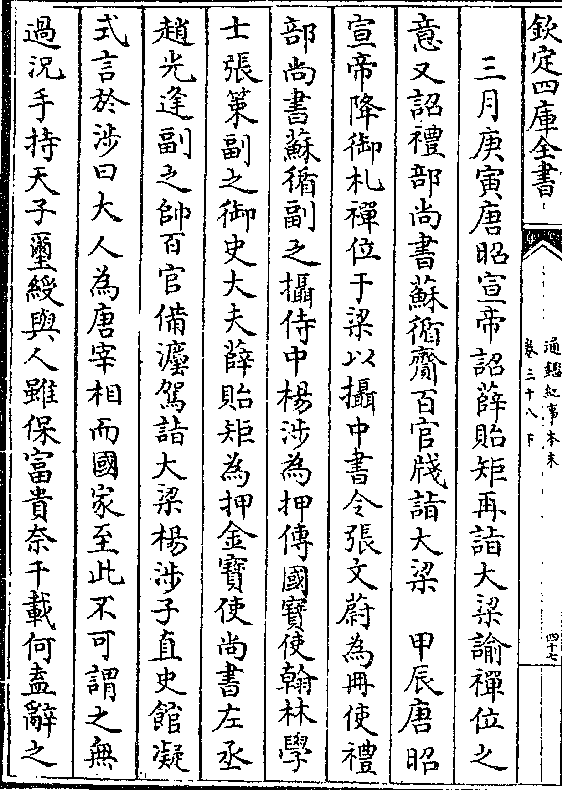 欽定四庫全書
通鑑紀事本末
卷三十八下
四十七
三月庚寅唐昭宣帝詔薛貽矩再詣大梁諭禪位之
意又詔禮部尚書蘇循齎百官牋詣大梁　甲辰唐昭
宣帝降御札禪位于梁以攝中書令張文蔚為冊使禮
部尚書蘇循副之攝侍中楊涉為押傳國寳使翰林學
士張策副之御史大夫薛貽矩為押金寳使尚書左丞
趙光逢副之帥百官備灋駕詣大梁楊涉子直史館凝
式言於涉曰大人為唐宰相而國家至此不可謂之無
過況手持天子璽綬與人雖保富貴奈千載何盍辭之